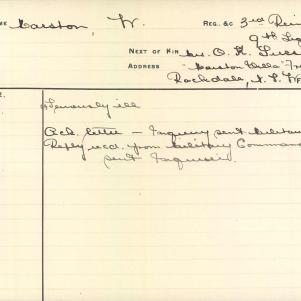 ME Marston, W. REG. &C 3rd Rein
9th
NEXT OF KIN Mr. O. H.
ADDRESS "Marston Villa"
Rockdale, N.S.W.
Seriously ill
Ack. letter — Inquiry sent Militar
Reply recd. from Military Comman
sent Inquirer.